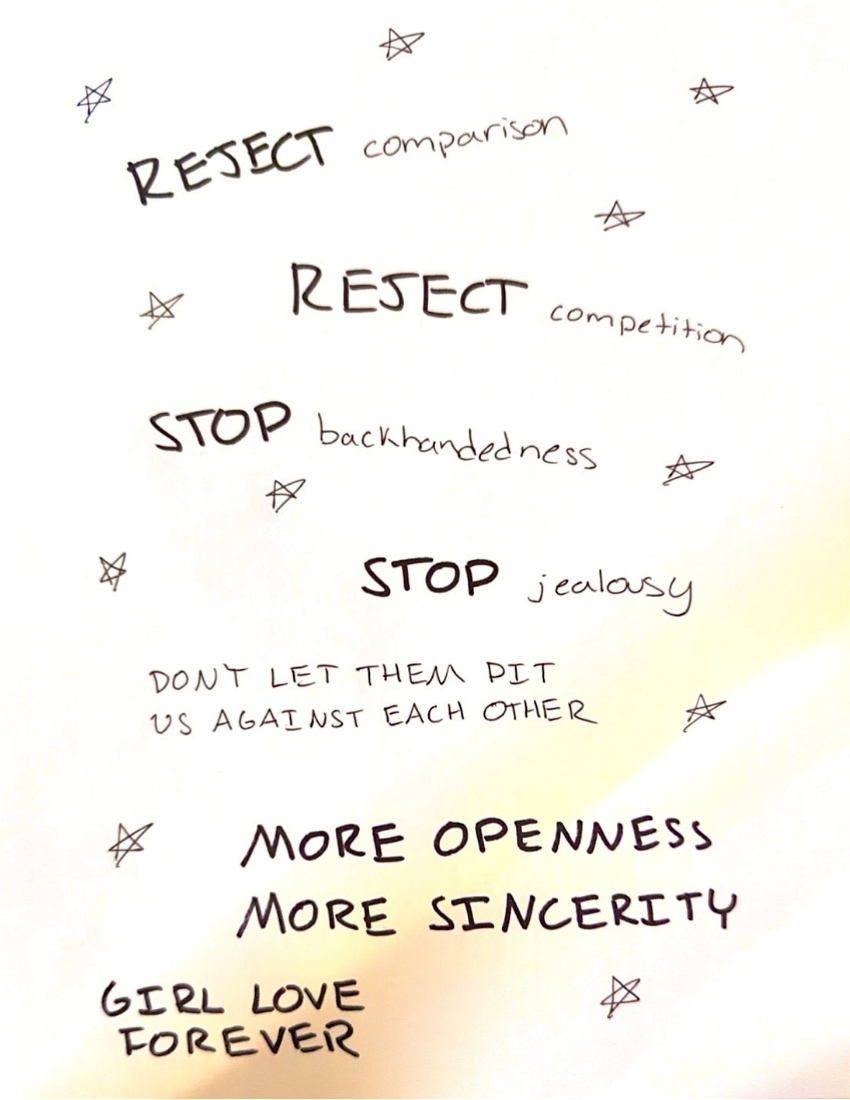 REJECT comparison
REJECT competition
STOP backhandedness
STOP jealousy
DON'T LET THEM PIT
US AGAINST EACH OTHER
MORE OPENNESS
MORE SINCERITY
GIRL LOVE
FOREVER